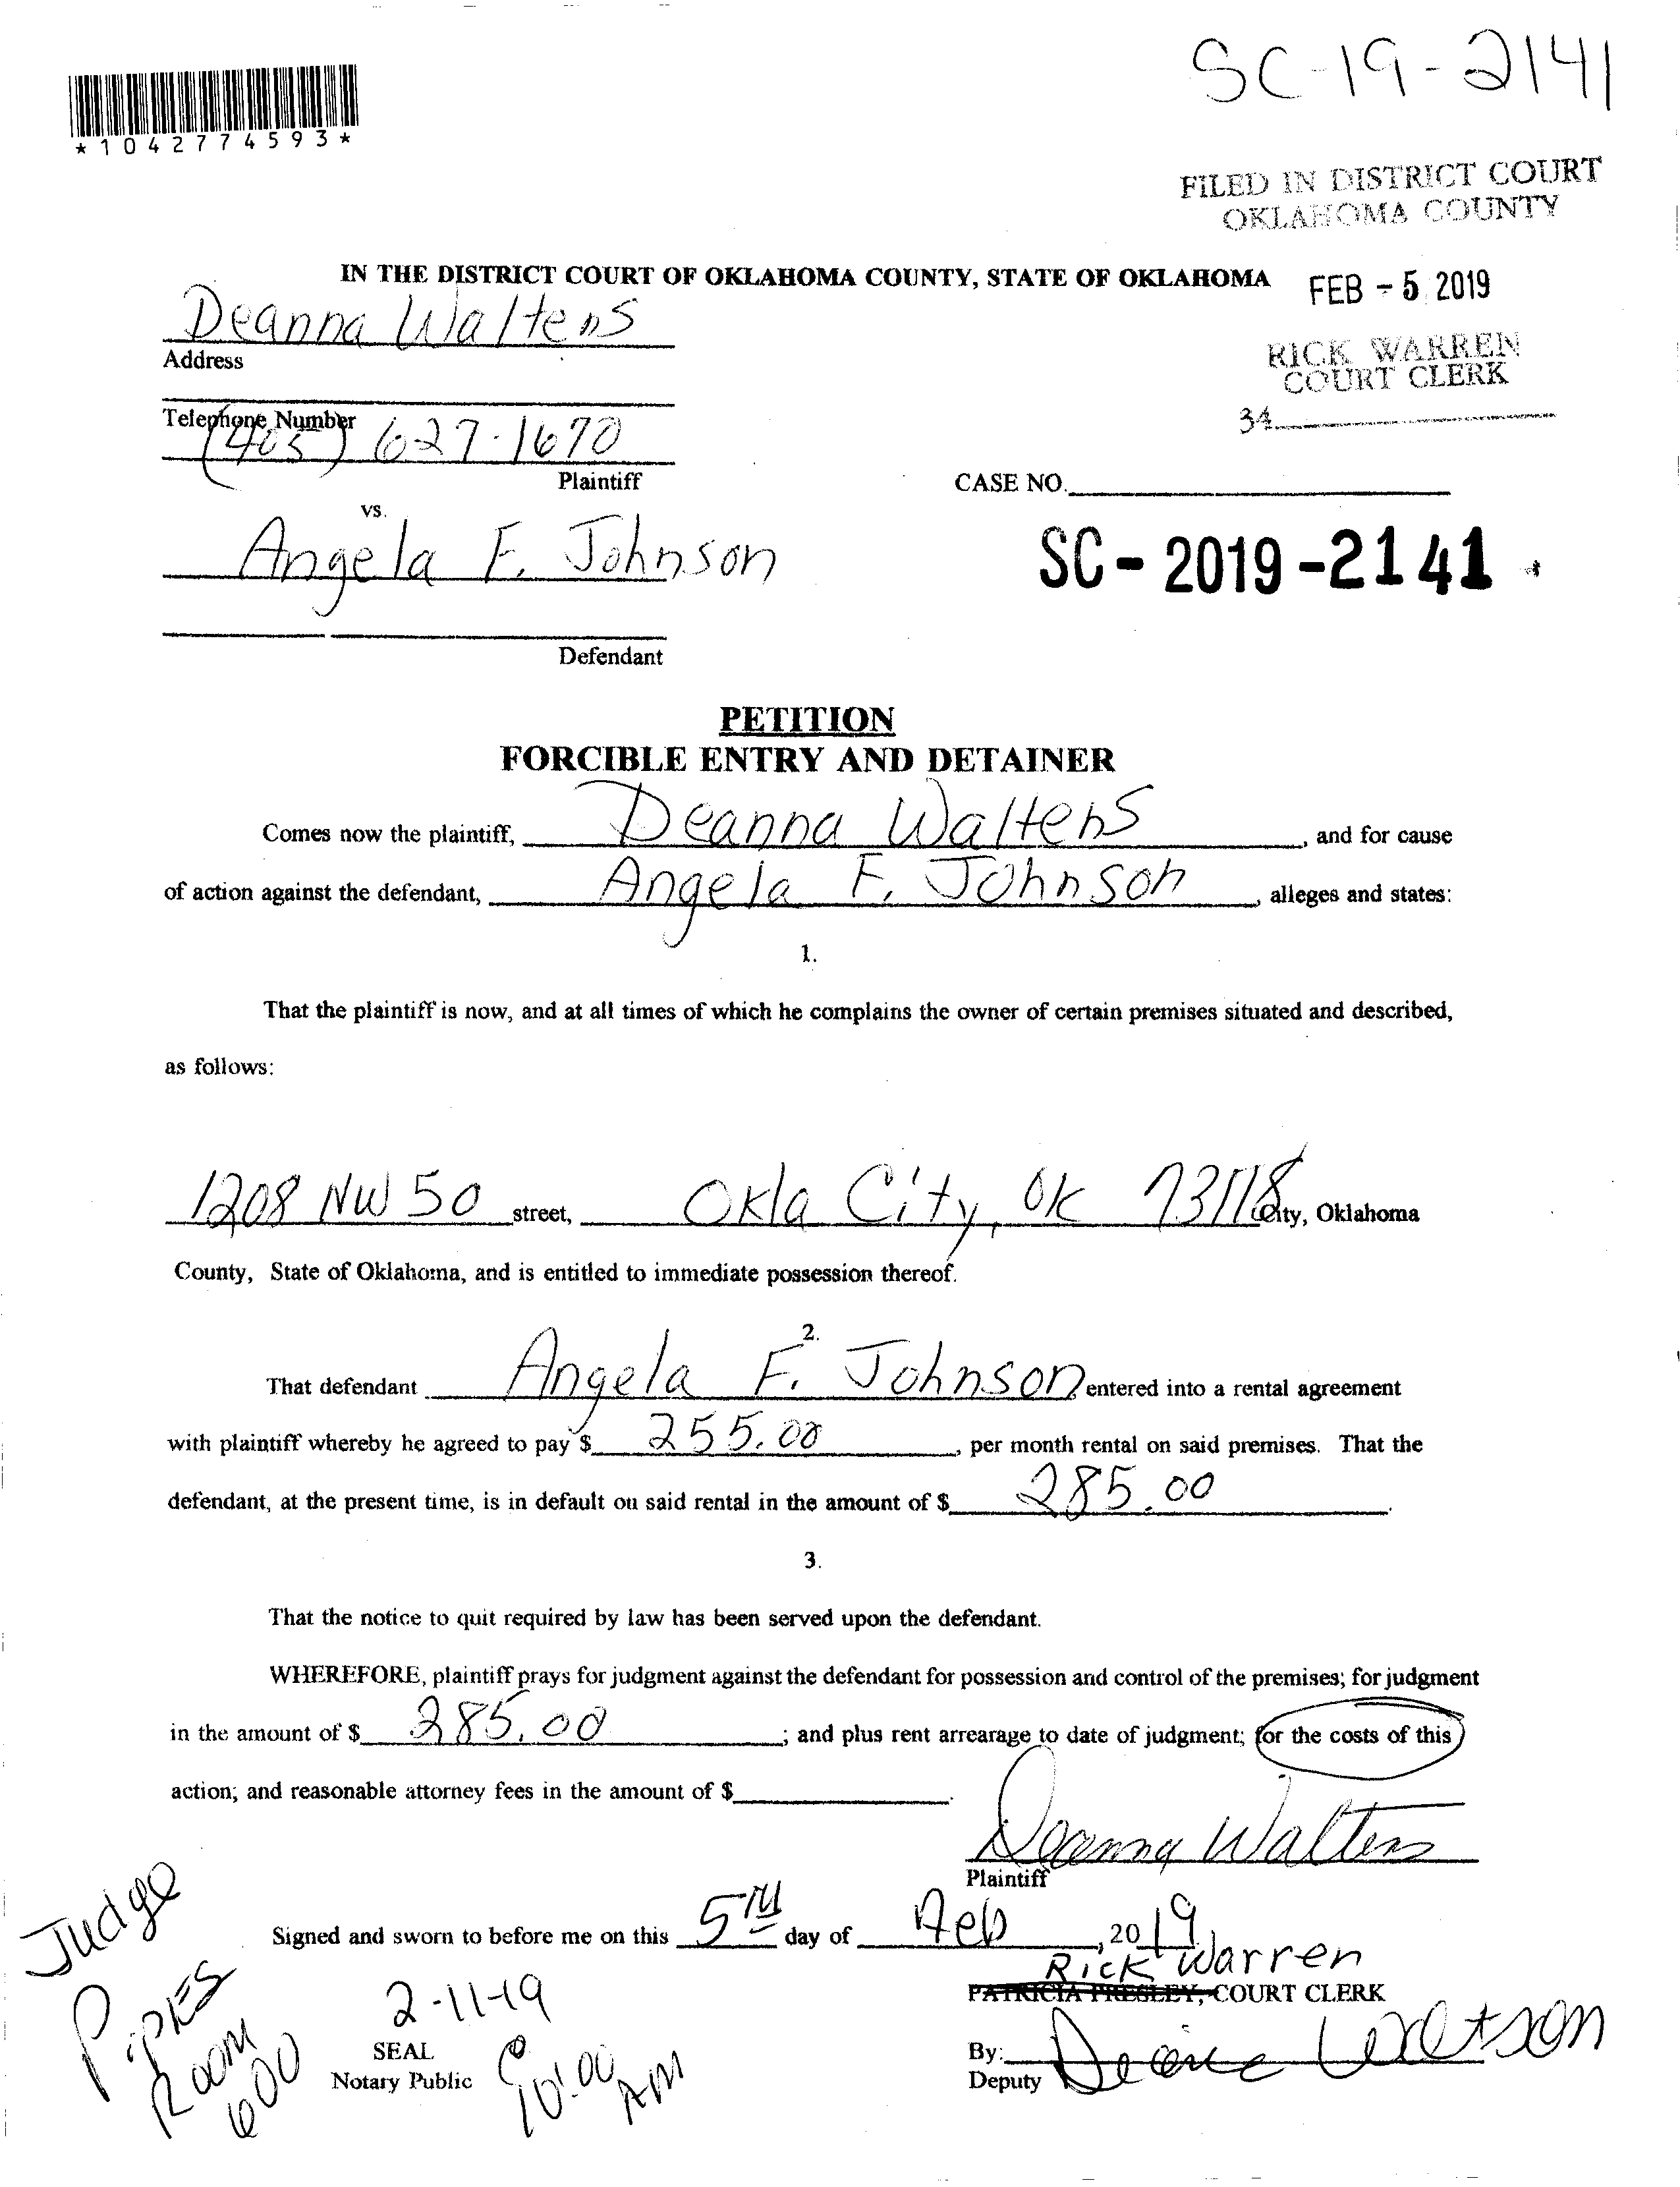 SC-19-2141
*1042774593*
FILED IN DISTRICT COURT
OKLAHOMA COUNTY
IN THE DISTRICT COURT OF OKLAHOMA COUNTY, STATE OF OKLAHOMA
FEB - 5 2019
Deanna Walters
Address
RICK WARREN
COURT CLERK
34
Telephone Number
(405) 627-1670
Plaintiff
CASE NO.
vs.
Angela F. Johnson
SC-2019-2141
Defendant
PETITION
FORCIBLE ENTRY AND DETAINER
Comes now the plaintiff, Deanna Walters, and for cause
of action against the defendant, Angela F. Johnson, alleges and states:
1.
That the plaintiff is now, and at all times of which he complains the owner of certain premises situated and described,
as follows:
1208 NW 50 street, Okla City, OK 73118 City, Oklahoma
County, State of Oklahoma, and is entitled to immediate possession thereof.
2.
That defendant Angela F. Johnson entered into a rental agreement
with plaintiff whereby he agreed to pay $ 255.00, per month rental on said premises. That the
defendant, at the present time, is in default on said rental in the amount of $ 285.00.
3.
That the notice to quit required by law has been served upon the defendant.
WHEREFORE, plaintiff prays for judgment against the defendant for possession and control of the premises; for judgment
in the amount of $ 285.00; and plus rent arrearage to date of judgment; for the costs of this
action; and reasonable attorney fees in the amount of $.
Deanna Walters
Plaintiff
Signed and sworn to before me on this 5TH day of Feb, 2019.
Rick Warren
PATRICIA PRESLEY, COURT CLERK
By:
Deputy
Judge
Pipkes
Room
600
2-11-19
SEAL
Notary Public
@
10:00
AM